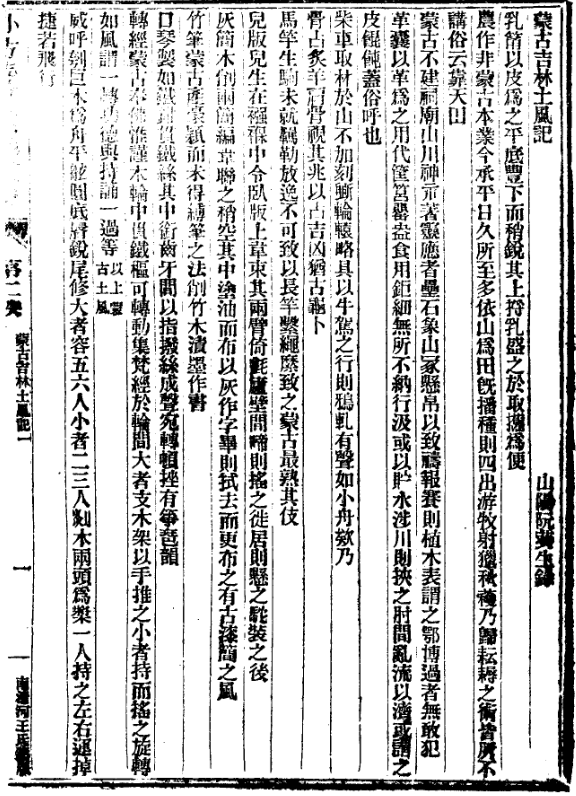 蒙古吉林土風記
山陽阮葵生錄
乳筩以皮為之平底豐下而稍銳其上捋乳盛之於取攜為便
農作非蒙古本業今承平日久所至多依山為田旣播種則四出游牧射獵秋穫乃歸耘耨之術皆所不
講俗云靠天田
蒙古不建祠廟山川神示著靈應者壘石象山冢懸帛以致禱報賽則植木表謂之鄂博過者無敢犯
革囊以革為之用代筐筥罌盎食用鉅細無所不納行汲或以貯水涉川則挾之肘間亂流以濟或謂之
皮餛飩蓋俗呼也
柴車取材於山不加刻斲輪轅略具以牛駕之行則鴉軋有聲如小舟欸乃
骨占炙羊肩骨視其兆以占吉凶猶古龜卜
馬竿生駒未就羈勒放逸不可致以長竿繫繩縻致之蒙古最熟其伎
兒版兒生在襁褓中令臥版上韋束其兩臂倚氈廬壁間啼則搖之徙居則懸之駝裝之後
灰簡木削兩簡編韋聯之稍空其中塗油而布以灰作字畢則拭去而更布之有古漆簡之風
竹筆蒙古產棄穎而未得縛筆之法削竹木漬墨作書
口琴製如鐵鉗貫鐵絲其中銜齒牙間以指撥絲成聲宛轉頓挫有箏琶韻
轉經蒙古奉佛惟謹木輪中貫鐵樞可轉動集梵經於輪間大者支木架以手推之小者持而搖之旋轉
如風謂一轉功德與持誦一過等 以上蒙古土風
威呼刳巨木為舟平舷圓底脣銳尾修大者容五六人小者二三人剡木兩頭為槳一人持之左右運掉
捷若飛行
蒙古吉林土風記 一
一
南清河王氏